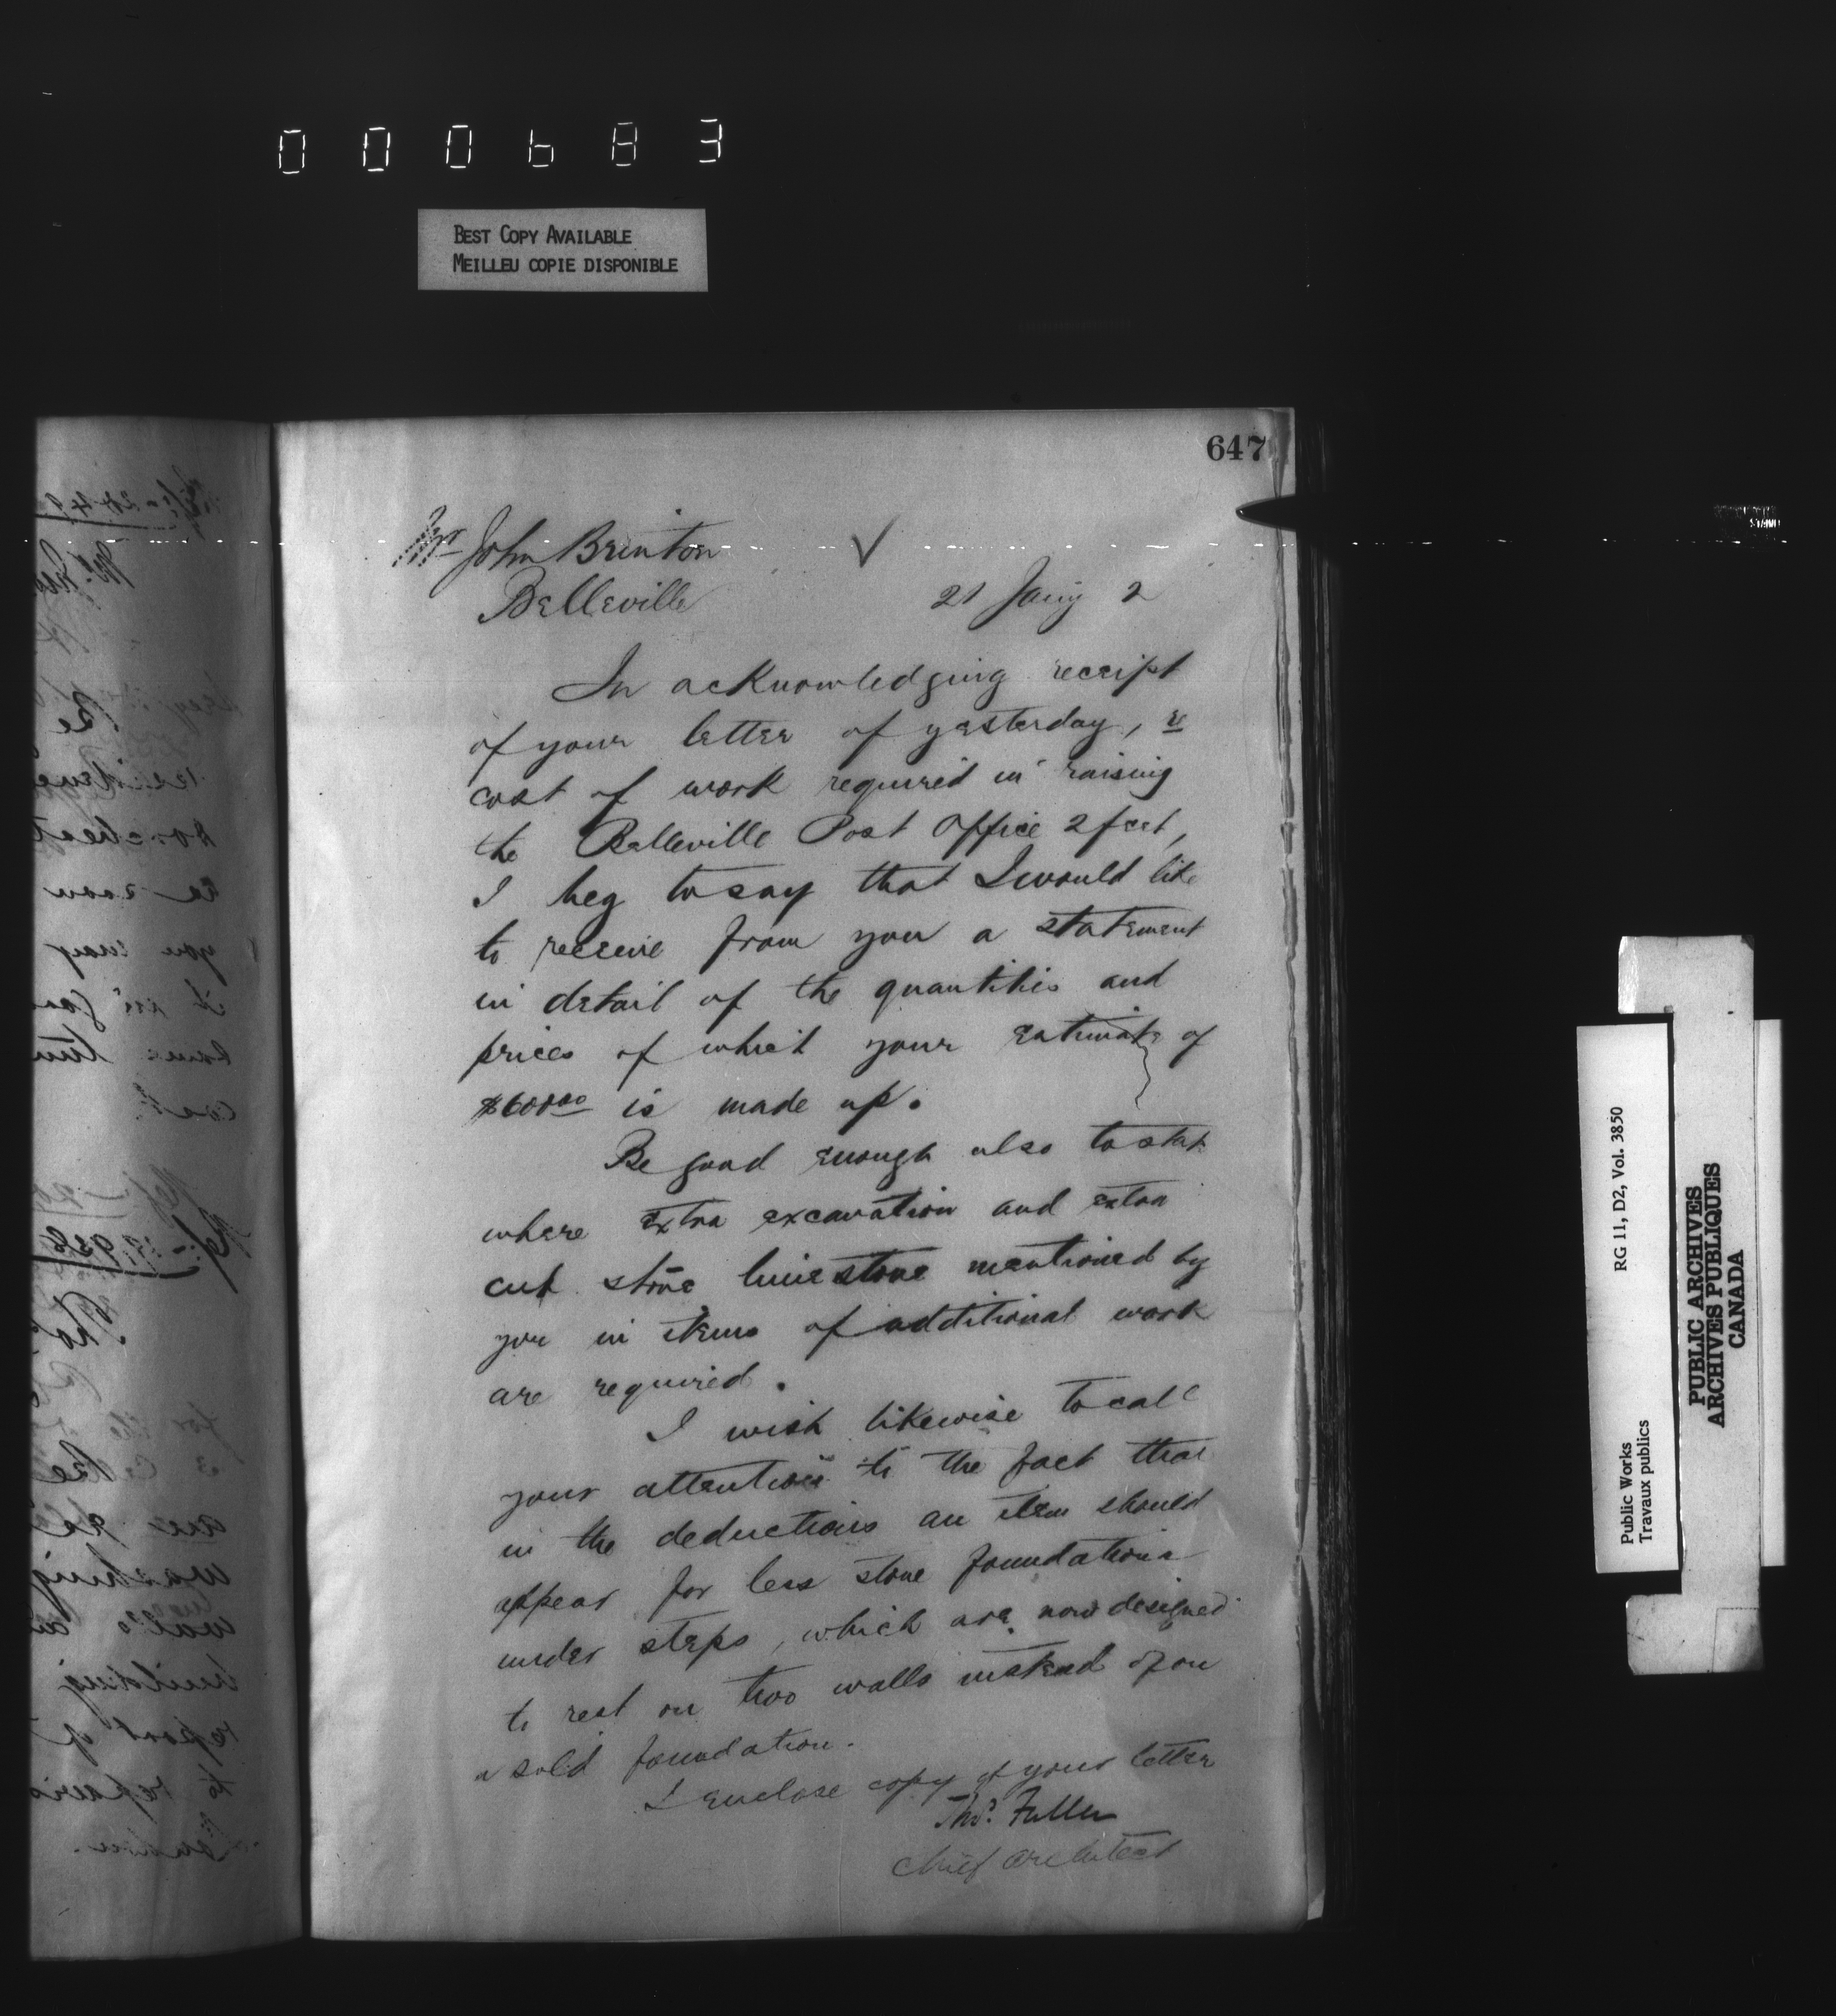 000683
BEST COPY AVAILABLE
MEILLEU COPIE DISPONIBLE
647
Mr John Brinton
Belleville
21 Jany 2
In acknowledging receipt
of your letter of yesterday, re
cost of work required in raising
the Belleville Post Office 2 feet,
I beg to say that I would like
to receive from you a statement
in detail of the quantities and
prices of which your estimate of
$600 00 is made up.
Be good enough also to state
where extra excavation and extra
cut stone limestone mentioned by
you in items of additional work
are required.
I wish likewise to call
your attention to the fact that
in the deductions an item should
appear for less stone foundations
under steps, which are now designed
to rest on two walls instead of on
a solid foundation.
I enclose copy of your letter
Thos. Fuller
Chief Architect
Public Works
Travaux publics
RG 11, D2, Vol. 3850
PUBLIC ARCHIVES
ARCHIVES PUBLIQUES
CANADA